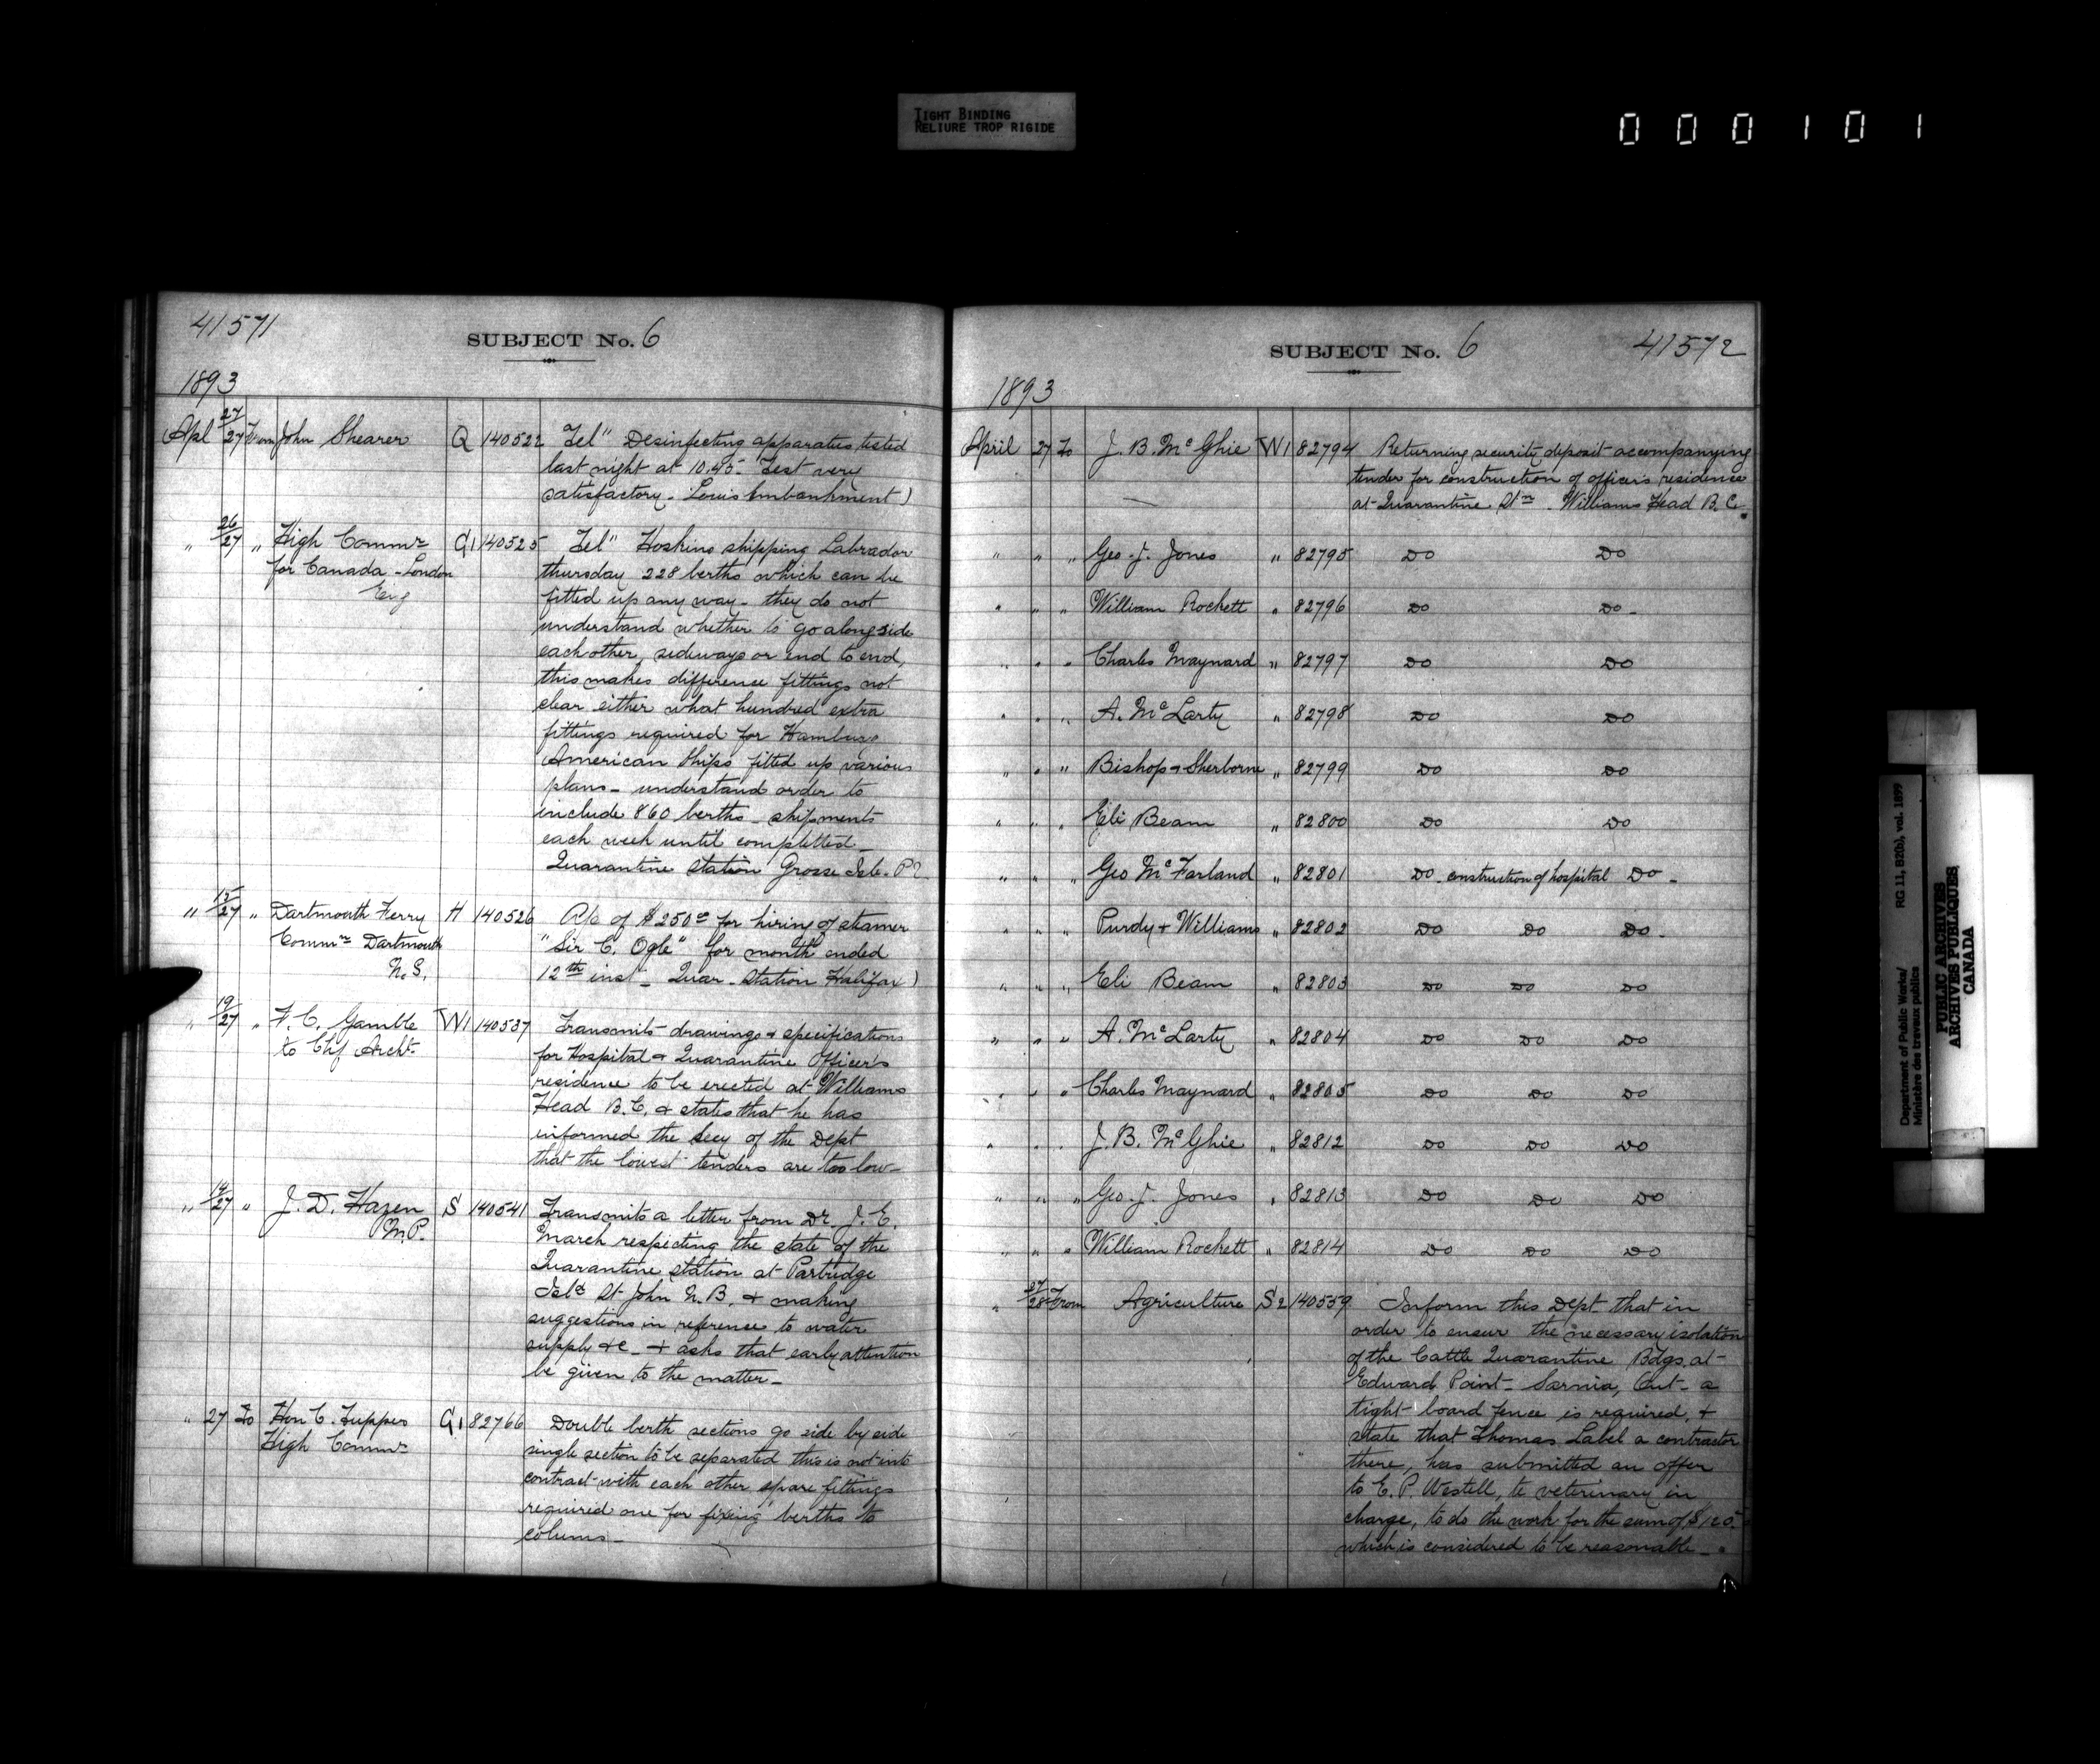 TIGHT BINDING
RELIURE TROP RIGIDE
000101
41571
SUBJECT No. 6
1893
Apl 27/27 From John Shearer Q 140522 Tel" Desinfecting apparatus tested
last night at 10.45- Test very
satisfactory - Louis Embankment)
" 26/27 " High Commr G1 140525 Tel" Hoskins shipping Labrador
for Canada - London thursday 228 berths which can be
Eng fitted up any way - they do not
understand whether to go alongside
each other, sideways or end to end,
this makes difference fittings not
clear either what hundred extra
fittings required for Hamburg
American Ships fitted up various
plans - understand order to
include 860 berths - shipments
each week until completted -
Quarantine Station Grosse Isle. P2
" 15/27 " Dartmouth Ferry H 140526 A/c of $250 for hiring of steamer
Commrs Dartmouth "Sir C. Ogle" for month ended
N.S. 12th inst - Quar. Station Halifax)
" 19/27 " F. C. Gamble W1 140537 Transmits drawings & specifications
to Chf Archt. for Hospital & Quarantine Officer's
residence to be erected at Williams
Head B.C. & states that he has
informed the Secy of the Dept
that the lowest tenders are too low -
" 14/27 " J. D. Hazen S 140541 Transmits a letter from Dr. J. E.
M.P. March respecting the state of the
Quarantine station at Partridge
Isld St John N.B. & making
suggestions in reference to water
supply &c - & asks that early attention
be given to the matter -
" 27 To Hon C. Tupper G1 82766 Double berth sections go side by side
High Commr single section to be separated this is not into
contract with each other spare fittings
required one for fixing berths to
colums -
SUBJECT No. 6 41572
1893
April 27 To J. B. McGhie W1 82794 Returning security deposit accompanying
tender for construction of officer's residence
at Quarantine Stn. Williams Head B.C.
" " " Geo. J. Jones " 82795 Do Do
" " " William Rockett " 82796 Do Do -
" " " Charles Maynard " 82797 Do Do
" " " A. McLarty " 82798 Do Do
" " " Bishop & Sherborne " 82799 Do Do
" " " Eli Beam " 82800 Do Do
" " " Geo McFarland " 82801 Do - construction of hospital Do -
" " " Purdy & Williams " 82802 Do Do Do -
" " " Eli Beam " 82803 Do Do Do
" " " A. McLarty " 82804 Do Do Do
" " " Charles Maynard " 82805 Do Do Do
" " " J. B. McGhie " 82812 Do Do Do
" " " Geo. J. Jones " 82813 Do Do Do
" " " William Rockett " 82814 Do Do Do
" 27/28 From Agriculture S2 140559 Inform this Dept that in
order to ensur the necessary isolation
of the Cattle Quarantine Bdgs. at
Edward Point - Sarnia, Ont - a
tight board fence is required, &
state that Thomas Label a contractor
there, has submitted an offer
to C. P. Westell, te veterinary in
charge, to do the work for the sum of $120-
which is considered to be reasonable -
Department of Public Works/ RG 11, B2(b), vol. 1899
Ministère des travaux publics
PUBLIC ARCHIVES
ARCHIVES PUBLIQUES
CANADA